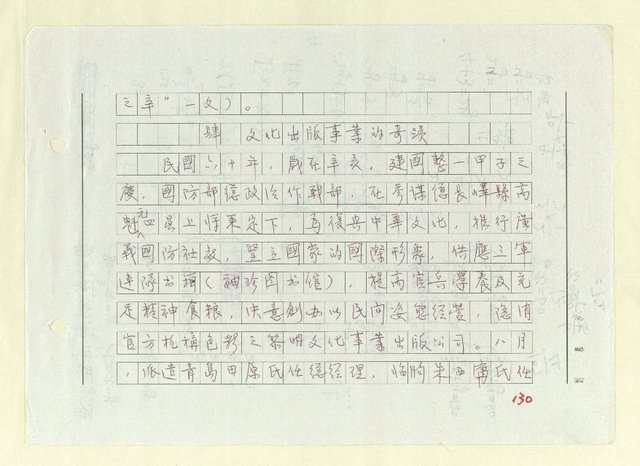 之辛"一文)。
肆 文化出版事業的奇談
民國六十年，歲在辛亥，建國整一甲子之
慶，國防部總政治作戰部，在參謀總長嶧縣高
魁元四星上將策定下，為復興中華文化，推行廣
義國防社教，豎立國家的國際形象，供應三軍
連隊书箱(袖珍図书館)，提高官兵學養及充
足精神食粮，決意創办以民间姿態經營，隐有
官方机構色彩之黎明文化事業出版公司。八月
，派遣青島田原氏任總經理，临朐朱西甯氏任
130